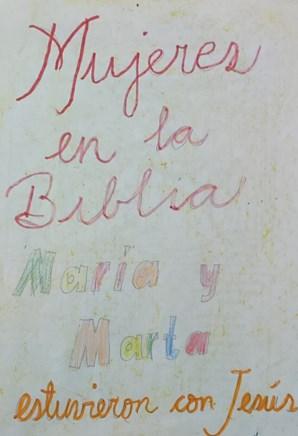 Mujeres
en la
Biblia
María y
Marta
estuvieron con Jesús